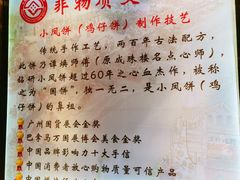 非物质文
小凤饼（鸡仔饼）制作技艺
传统手作工艺，两百年古法配方，
此饼乃谭焕师傅（原成珠楼名点心师），
钻研小凤饼超过60年之心血杰作，被称
之为“国饼”，独一无二，是小凤饼（鸡
仔饼）的鼻祖。
广州国货展会金奖
巴拿马万国展博会美食金奖
中国品牌影响力十大手信
中国消费者放心购物质量可信产品